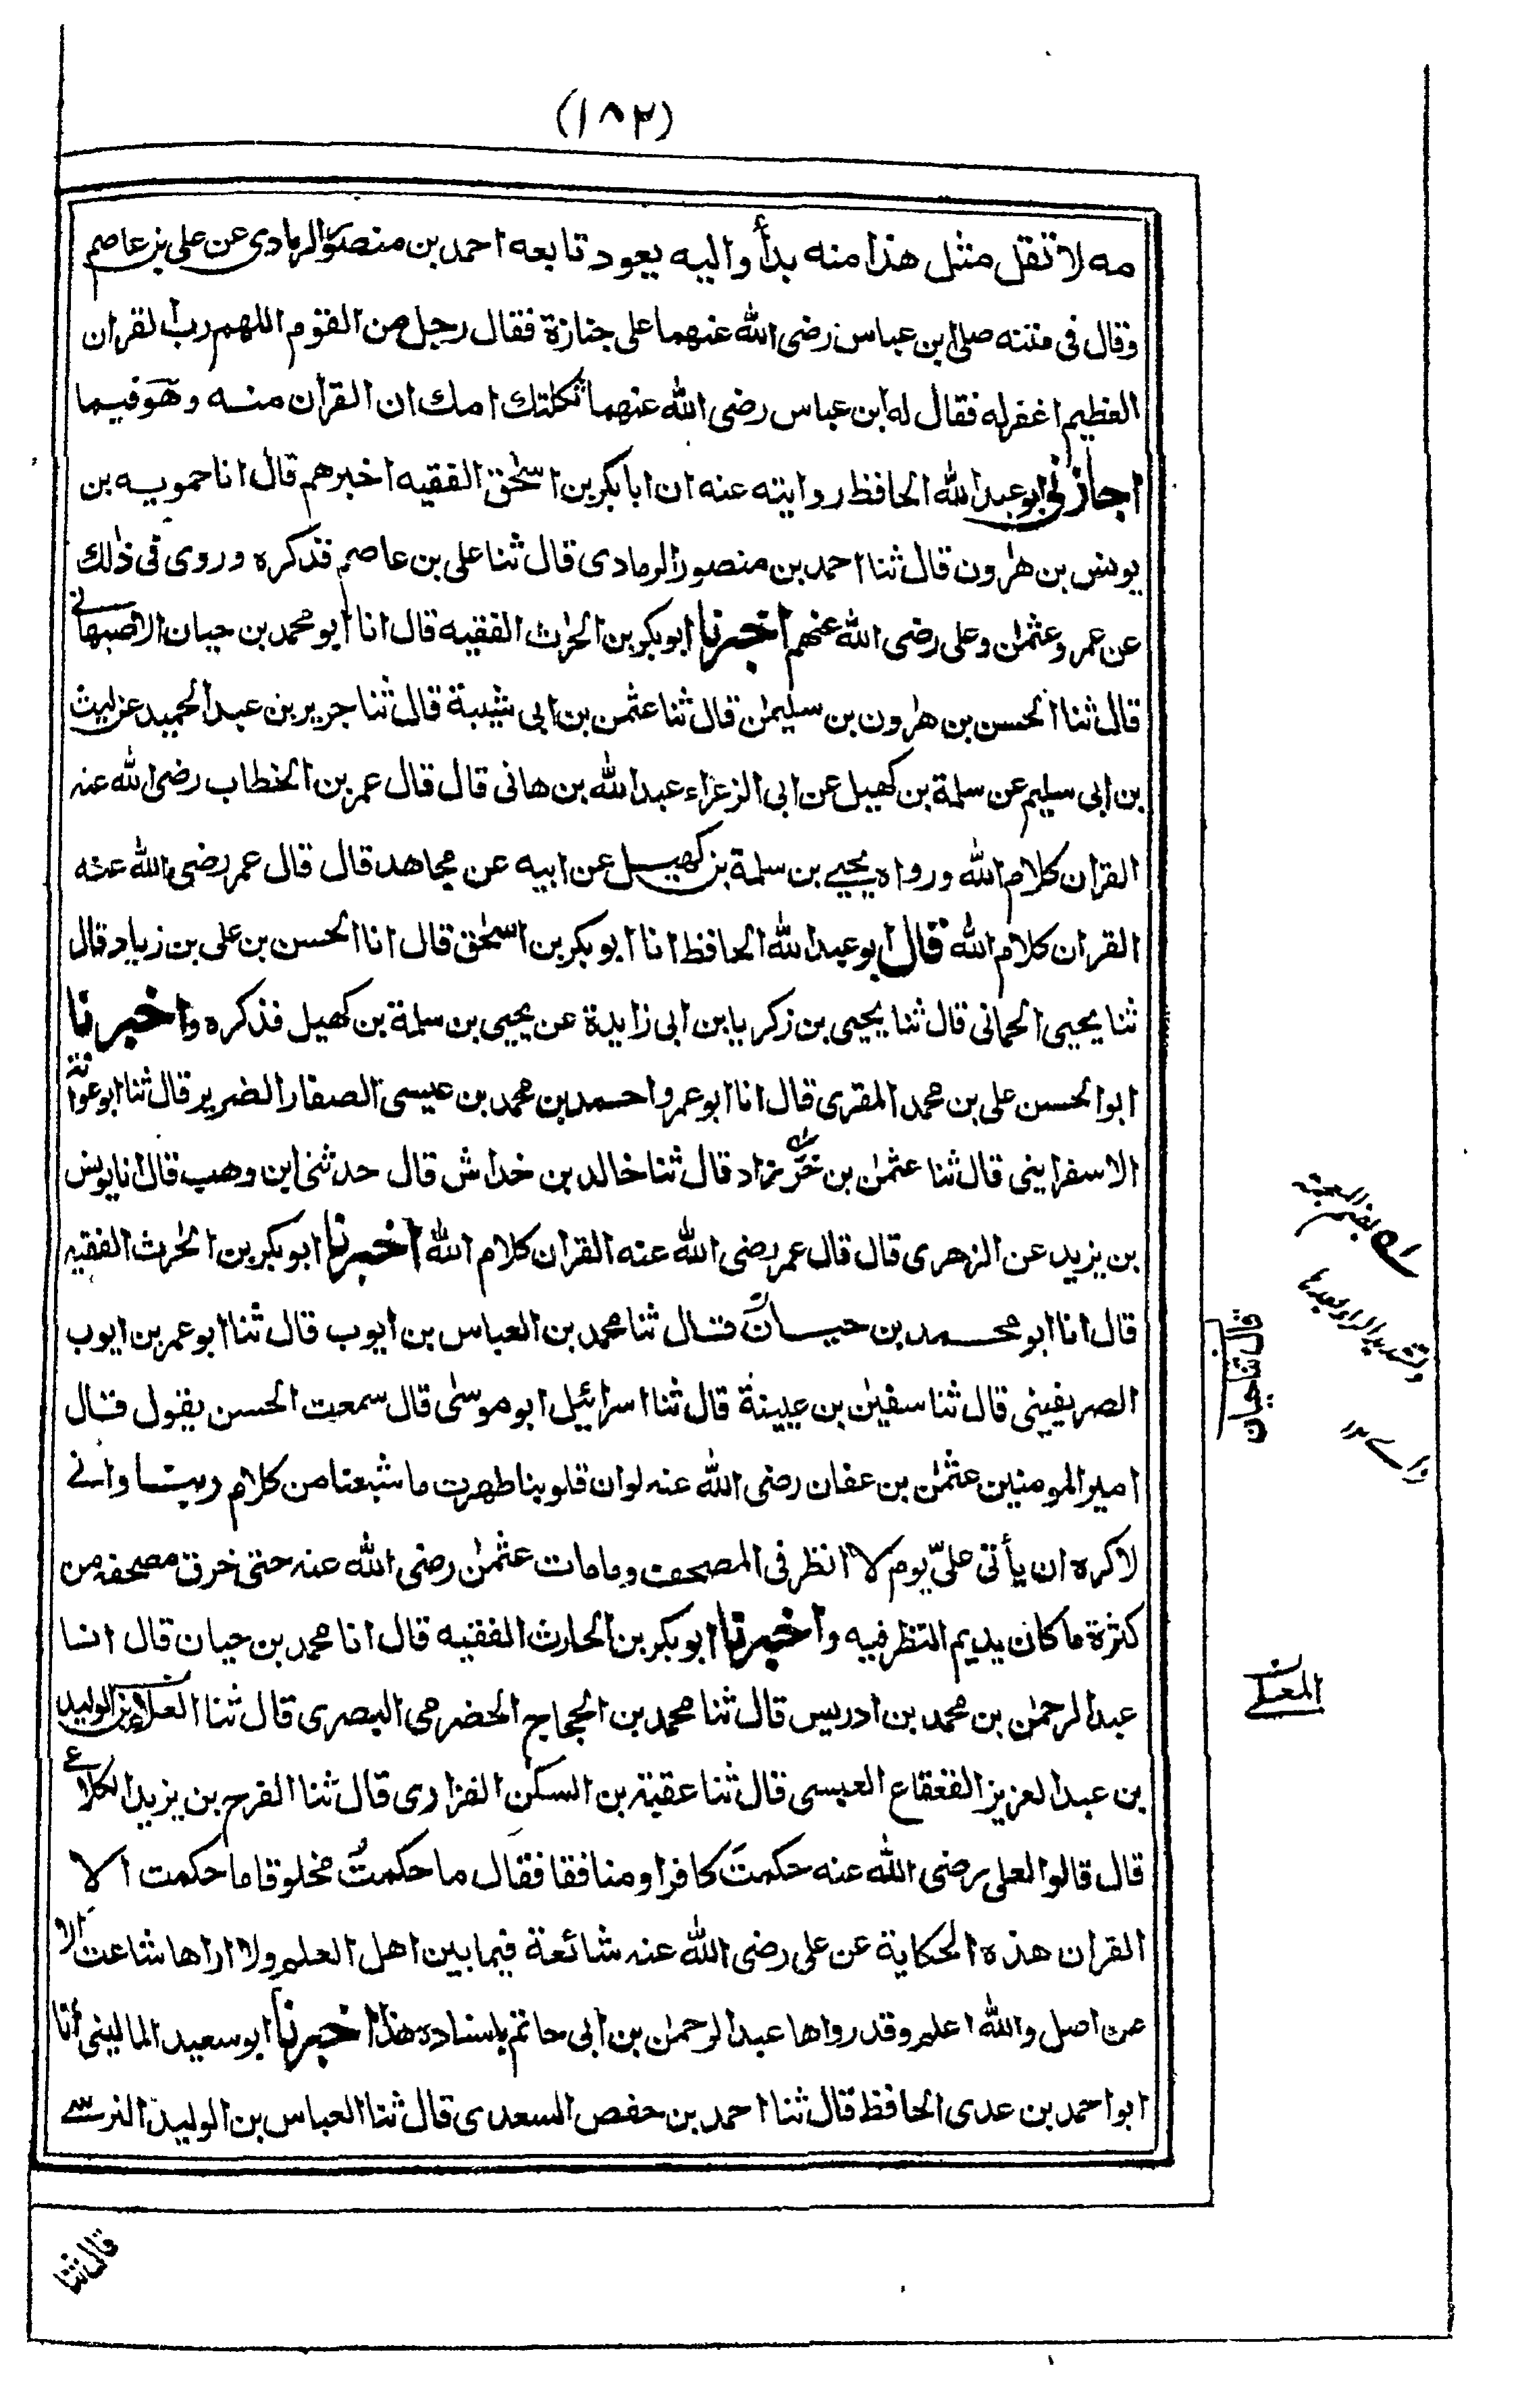 (١٨٢)
مه لا تقل مثل هذا منه بدأ واليه يعود تابعه احمد بن منصور الرمادى عن على بن عاصم
وقال فى متنه صلى ابن عباس رضى الله عنهما على جنازة فقال رجل من القوم اللهم رب القران
العظيم اغفر له فقال له ابن عباس رضى الله عنهما ثكلتك امك ان القران منه وهو فيما
اجازنى ابو عبد الله الحافظ روايته عنه ان ابا بكر بن اسحٰق الفقيه اخبرهم قال انا حمويه بن
يونس بن هٰرون قال ثنا احمد بن منصور الرمادى قال ثنا على بن عاصم فذكره وروى فى ذٰلك
عن عمر وعثمٰن وعلى رضى الله عنهم اخبرنا ابو بكر بن الحٰرث الفقيه قال انا ابو محمد بن حيان الاصبهانے
قال ثنا الحسن بن هٰرون بن سليمٰن قال ثنا عثمٰن بن ابى شيبة قال ثنا جرير بن عبد الحميد عن ليث
بن ابى سليم عن سلمة بن كهيل عن ابى الزعراء عبد الله بن هانى قال قال عمر بن الخطاب رضى الله عنه
القران كلام الله ورواه يحيے بن سلمة بن كهيل عن ابيه عن مجاهد قال قال عمر رضى الله عنه
القران كلام الله قال ابو عبد الله الحافظ انا ابو بكر بن اسحٰق قال انا الحسن بن على بن زياد قال
ثنا يحيى الحمانى قال ثنا يحيى بن زكريا بن ابى زايدة عن يحيى بن سلمة بن كهيل فذكره واخبرنا
ابو الحسن على بن محمد المقرى قال انا ابو عمرو احمد بن محمد بن عيسى الصفار الضرير قال ثنا ابو عوانة
الاسفراينى قال ثنا عثمٰن بن خرّزاد قال ثنا خالد بن خداش قال حدثنى ابن وهب قال انا يونس
بن يزيد عن الزهرى قال قال عمر رضى الله عنه القران كلام الله اخبرنا ابو بكر بن الحٰرث الفقيه
قال انا ابو محمد بن حيان قال ثنا محمد بن العباس بن ايوب قال ثنا ابو عمر بن ايوب
الصريفينى قال ثنا سفيٰن بن عيينة قال ثنا اسرائيل ابو موسٰى قال سمعت الحسن يقول قال
امير المومنين عثمٰن بن عفان رضى الله عنه لو ان قلوبنا طهرت ما شبعنا من كلام ربنا وانے
لاكره ان يأتى علىّ يوم لا انظر فى المصحف وما مات عثمٰن رضى الله عنه حتى خرق مصحفه من
كثرة ما كان يديم النظر فيه واخبرنا ابو بكر بن الحارث الفقيه قال انا محمد بن حيان قال انا
عبد الرحمٰن بن محمد بن ادريس قال ثنا محمد بن الحجاج الحضرمى البصرى قال ثنا العلاء بن الوليد
بن عبد العزيز القعقاع العبسى قال ثنا عقبة بن السكن الفزارى قال ثنا الفرج بن يزيد الكلاعے
قال قالوا لعلى رضى الله عنه حكمتَ كافرا ومنافقا فقال ما حكمتُ مخلوقا ما حكمت الا
القران هذه الحكاية عن على رضى الله عنه شائعة فيما بين اهل العلم ولا اراها شاعت الا
عن اصل والله اعلم وقد رواها عبد الرحمٰن بن ابى حاتم باسناده هذا اخبرنا ابو سعيد المالينى انا
ابو احمد بن عدى الحافظ قال ثنا احمد بن حفص السعدى قال ثنا العباس بن الوليد النرسے
بضم المعجمة
وتشديد الراء بعدها
زاے
قال ثنا حيان
المعلے
قال ثنا